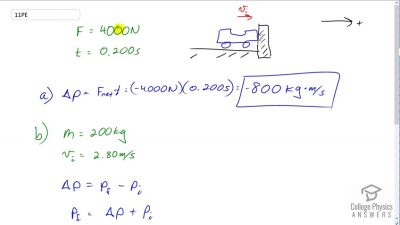 11PE
F = 4000N
t = 0.200s
vi
+
a) Δp = Fnet t = (-4000N)(0.200s) = -800 kg·m/s
b) m = 200kg
vi = 2.80m/s
Δp = pf - pi
pf = Δp + pi
College Physics
ANSWERS